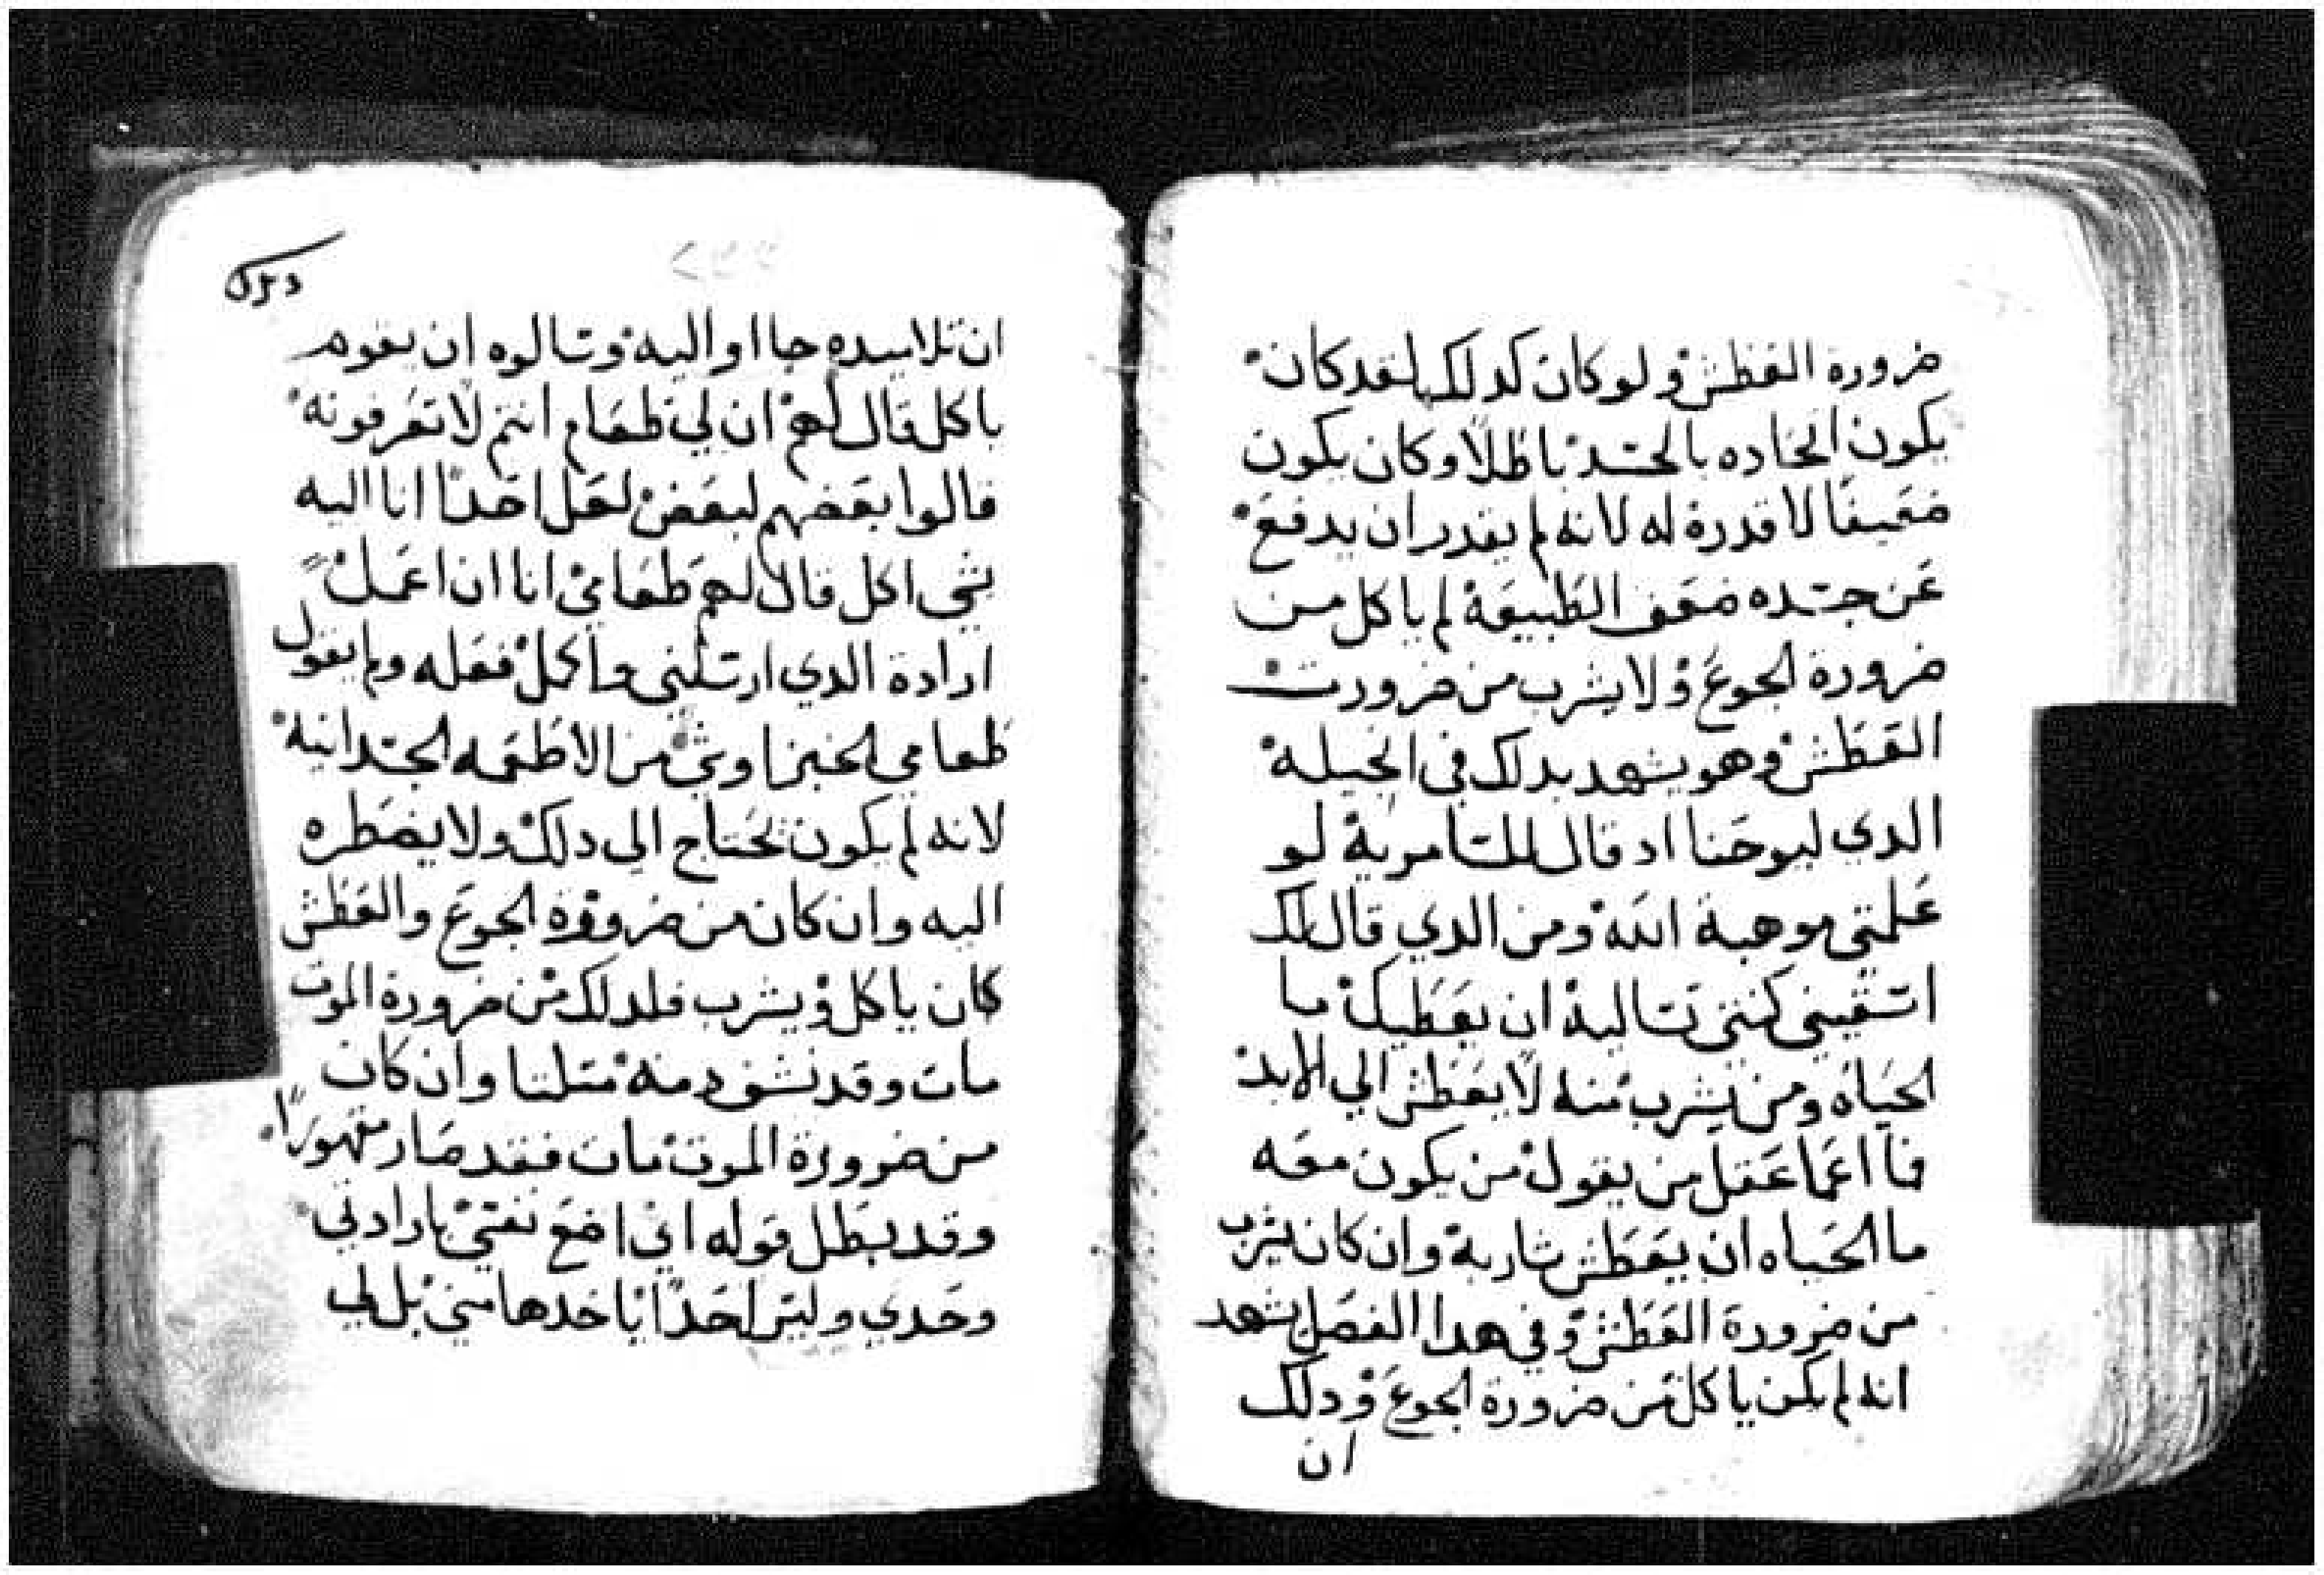 ضرورة العطش ولو كان كدلك لقد كان
يكون اتحاده بالجسد باطلاً وكان يكون
ضعيفًا لا قدرة له لانه لم يقدر ان يدفع
عن جسده ضعف الطبيعة لم ياكل من
ضرورة الجوع ولا يشرب من ضرورت
العطش وهو يشهد بدلك في انجيله
الدي ليوحنا اد قال للسامرية لو
علمتي موهبة الله ومن الدي قال لك
اسقيني كنتي تساليه ان يعطيك ما
الحياه ومن يشرب منه لا يعطش الي الابد
فا اعما عقل من يقول من يكون معه
ما الحياه ان يعطش شاربه وان كان يشرب
من ضرورة العطش وفي هدا الفصل يشهد
انه لم يكن ياكل من ضرورة الجوع ودلك
ان
ان تلاميده جااوا اليه وسالوه ان يقوم
ياكل قال لهم ان لي طعام انتم لا تعرفونه
قالوا بعضهم لبعض لعل احدًا اتا اليه
بشي اكل قال لهم طعامي انا ان اعمل
ارادة الدي ارسلني واكمل فعله ولم يقول
طعامي الخبز او شي من الاطعمه الجسدانيه
لانه لم يكون يحتاج الي دلك ولا يضطره
اليه وان كان من ضرورة الجوع والعطش
كان ياكل ويشرب فلدلك من ضرورة الموت
مات وقد نشف دمه متلنا وان كان
من ضرورة الموت مات فقد صار مقهورًا
وقد بطل قوله اني اضع نفسي بارادتي
وحدي وليس احدًا ياخدها مني بل لي